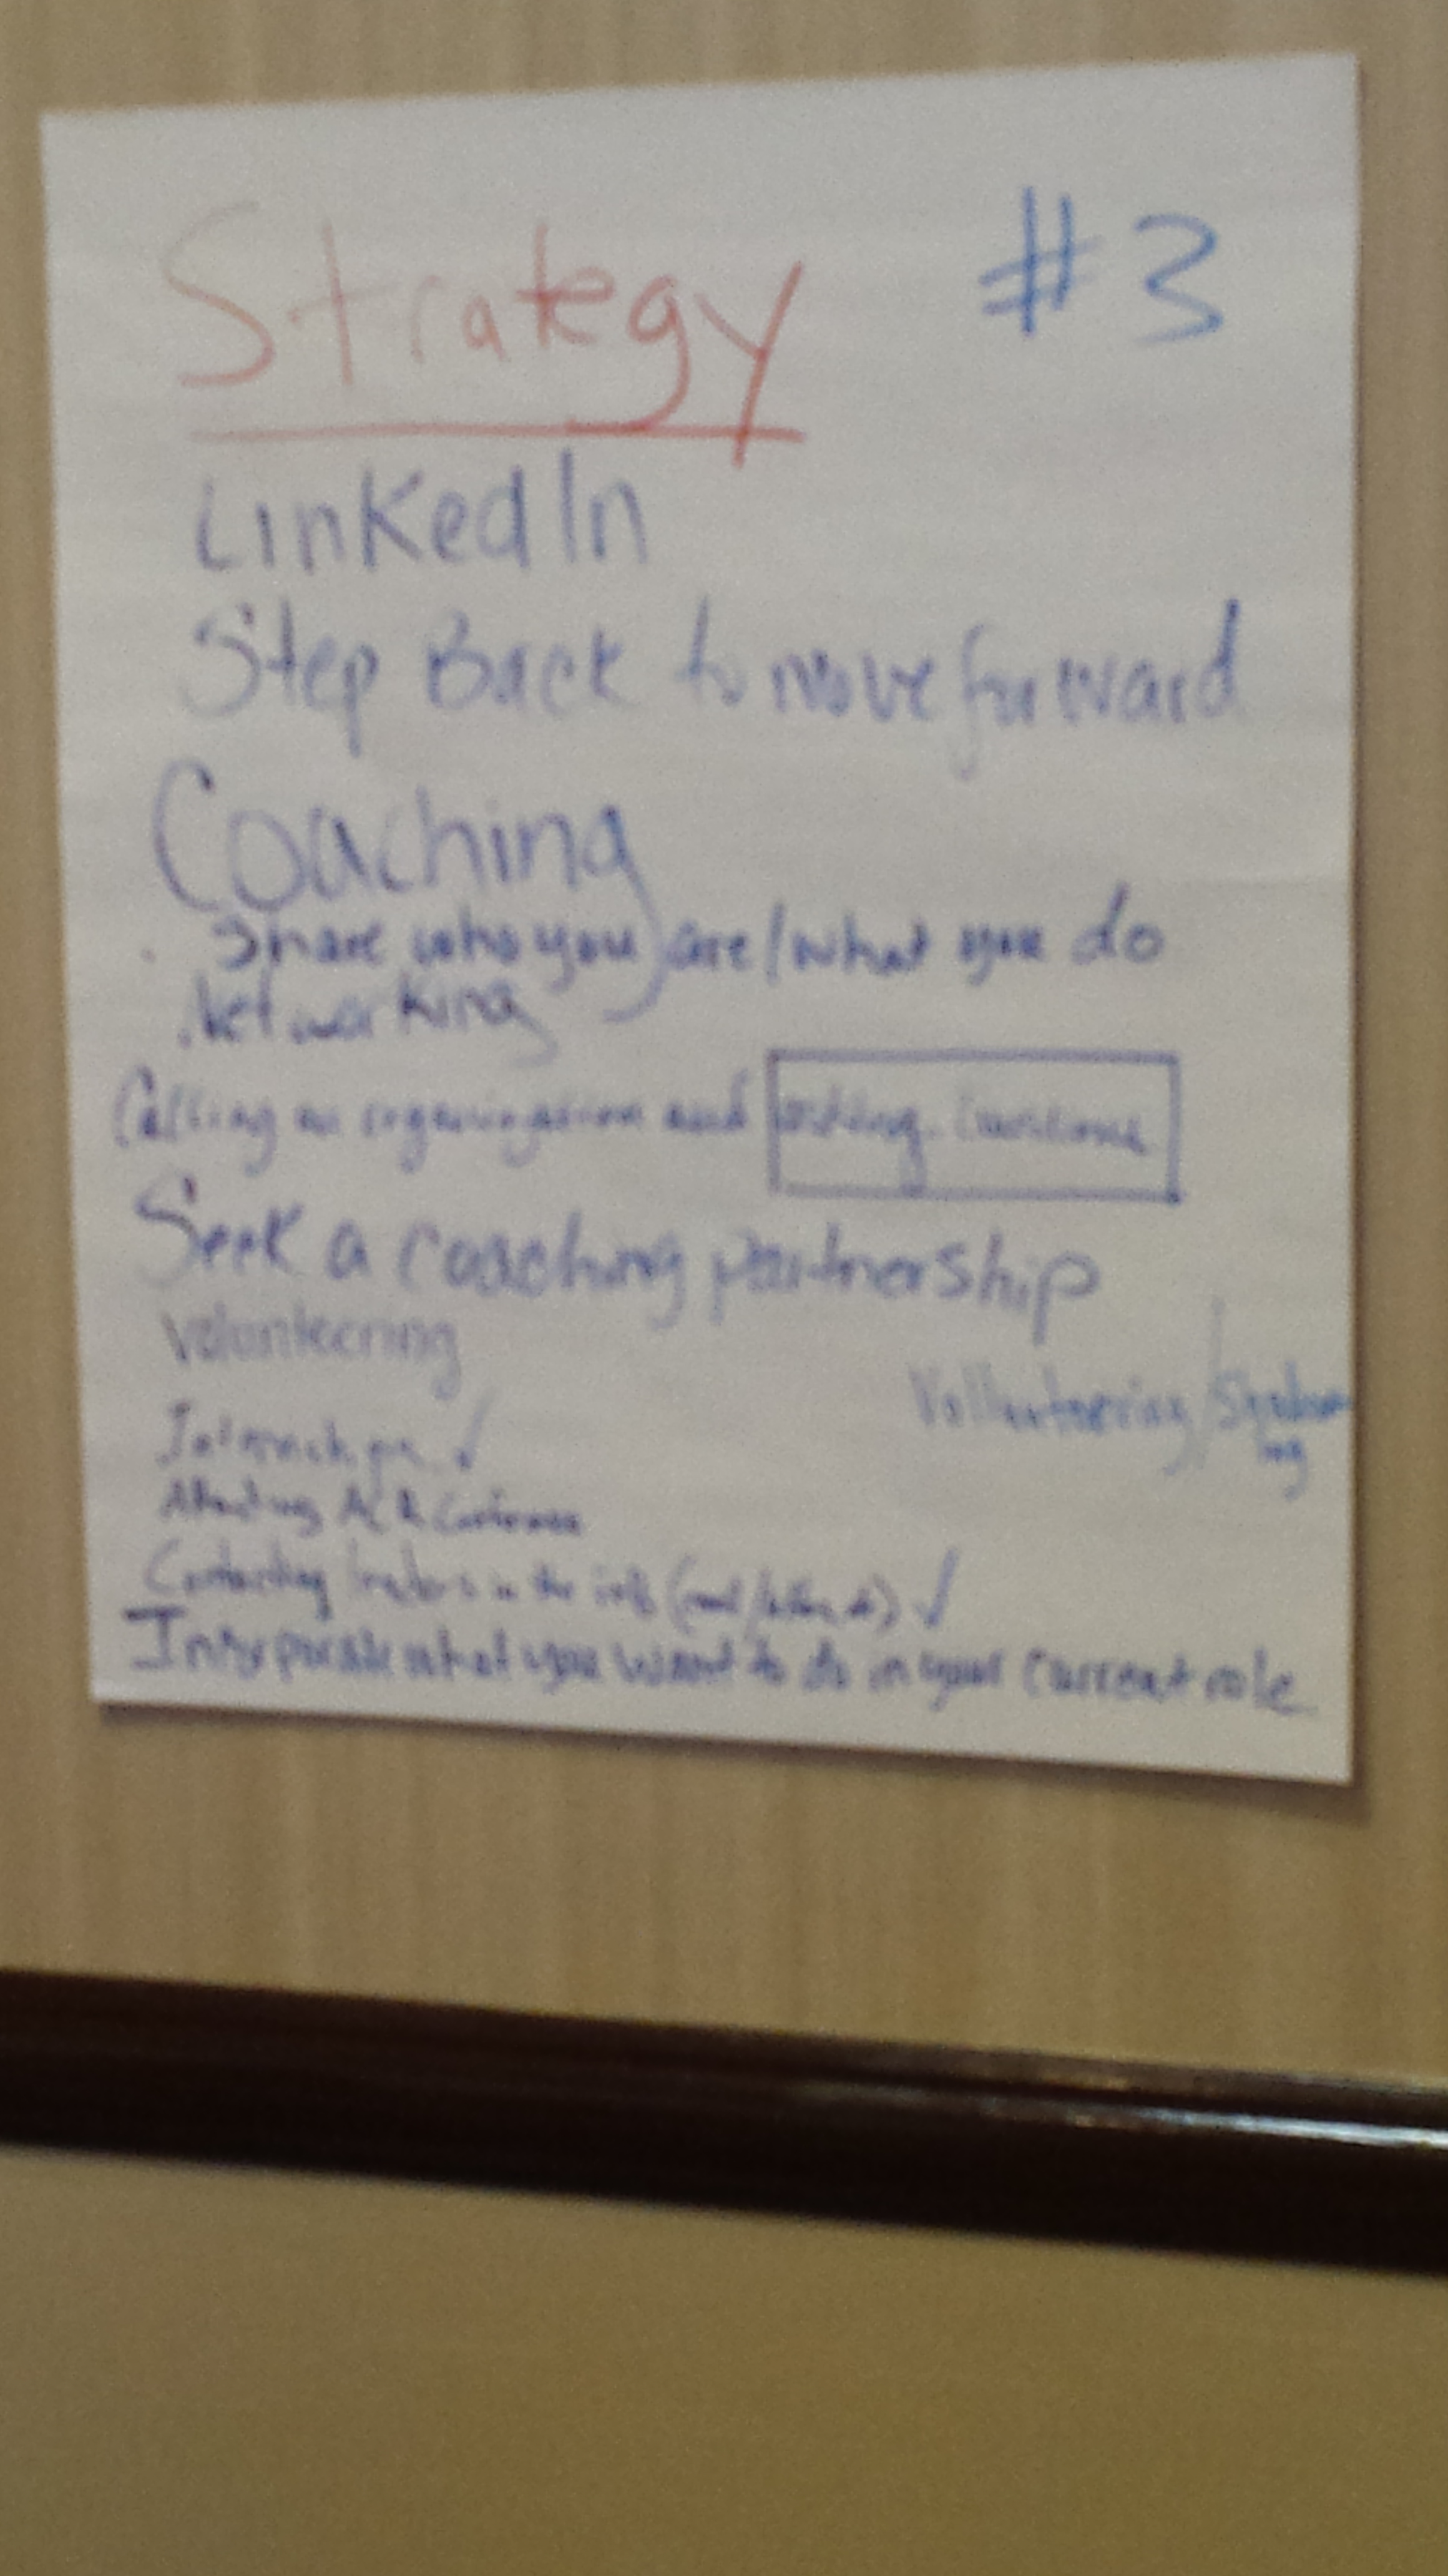 Strategy #3
LinkedIn
Step Back to move forward
Coaching
. Share who you are/what you do
. Networking
Calling an organization and asking questions
Seek a coaching partnership
Volunteering
Volunteering/Shadow
ing
Internships ✓
Attending Conference
Contacting leaders in the field ✓
Incorporate what you want to do in your current role